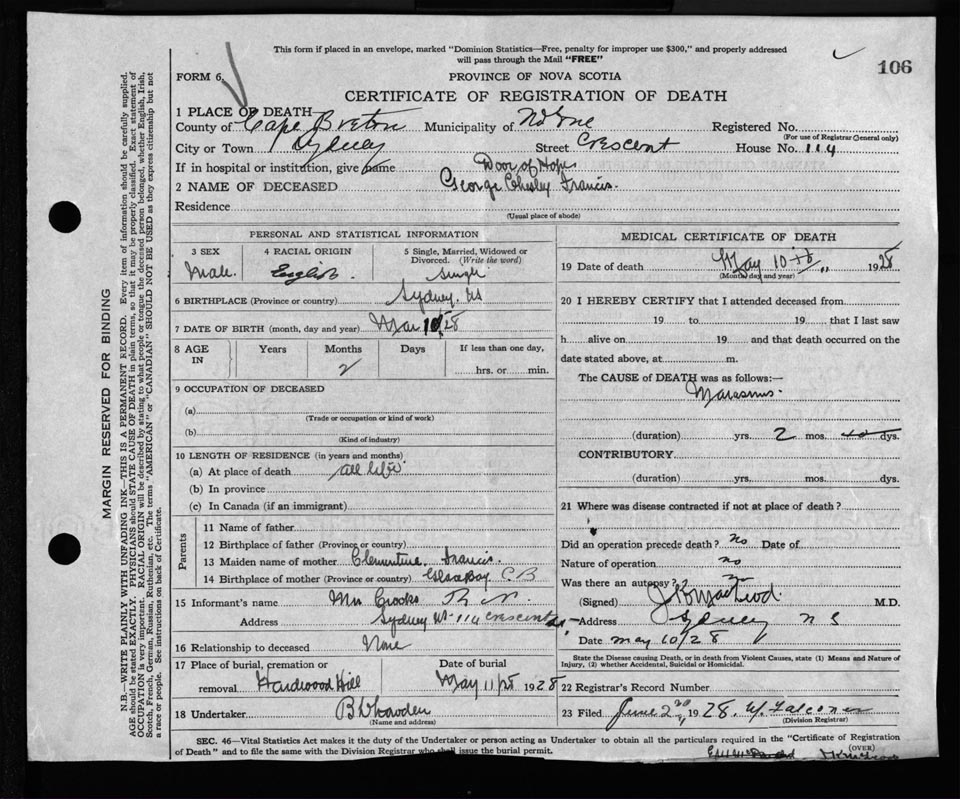 This form if placed in an envelope, marked "Dominion Statistics—Free, penalty for improper use $300," and properly addressed
will pass through the Mail "FREE"
106
FORM 6,
PROVINCE OF NOVA SCOTIA
CERTIFICATE OF REGISTRATION OF DEATH
1 PLACE OF DEATH
County of Cape Breton Municipality of Registered No.
(For use of Registrar General only)
City or Town Sydney Street Crescent House No. 114
If in hospital or institution, give name Door of Hope
2 NAME OF DECEASED George Chesley Francis.
Residence
(Usual place of abode)
PERSONAL AND STATISTICAL INFORMATION
3 SEX
Male.
4 RACIAL ORIGIN
English.
5 Single, Married, Widowed or
Divorced. (Write the word)
Single
6 BIRTHPLACE (Province or country) Sydney. NS
7 DATE OF BIRTH (month, day and year) Mar 10/28
8 AGE
IN
Years
Months
2
Days
If less than one day,
hrs. or min.
9 OCCUPATION OF DECEASED
(a)
(Trade or occupation or kind of work)
(b)
(Kind of industry)
10 LENGTH OF RESIDENCE (in years and months)
(a) At place of death all life.
(b) In province
(c) In Canada (if an immigrant)
Parents
11 Name of father
12 Birthplace of father (Province or country)
13 Maiden name of mother Clementine. Francis.
14 Birthplace of mother (Province or country) Glace Bay C.B
15 Informant's name Mrs Crooks
Address Sydney NS 114 Crescent
16 Relationship to deceased None
17 Place of burial, cremation or
removal Hardwood Hill
Date of burial
May 11/28 1928
18 Undertaker
(Name and address)
MEDICAL CERTIFICATE OF DEATH
19 Date of death May 10th 1928
(Month, day and year)
20 I HEREBY CERTIFY that I attended deceased from
19 to 19 that I last saw
h alive on 19 and that death occurred on the
date stated above, at m.
The CAUSE of DEATH was as follows:—
Marasmus.
(duration) yrs. 2 mos. dys.
CONTRIBUTORY
(duration) yrs. mos. dys.
21 Where was disease contracted if not at place of death?
Did an operation precede death? no Date of
Nature of operation no
Was there an autopsy? no
(Signed) M.D.
Address Sydney N S
Date May 10/28
State the Disease causing Death, or in death from Violent Causes, state (1) Means and Nature of
Injury, (2) whether Accidental, Suicidal or Homicidal.
22 Registrar's Record Number
23 Filed June 2nd 1928. W. Falconer
(Division Registrar)
SEC. 46—Vital Statistics Act makes it the duty of the Undertaker or person acting as Undertaker to obtain all the particulars required in the "Certificate of Registration
of Death" and to file the same with the Division Registrar who shall issue the burial permit.
(OVER)
MARGIN RESERVED FOR BINDING
N.B.—WRITE PLAINLY WITH UNFADING INK—THIS IS A PERMANENT RECORD. Every item of information should be carefully supplied.
AGE should be stated EXACTLY. PHYSICIANS should STATE CAUSE OF DEATH in plain terms, so that it may be properly classified. Exact statement of
OCCUPATION is very important. RACIAL ORIGIN will be described by stating to what people or tongue the deceased person belonged, whether English, Irish,
Scotch, French, German, Russian, Ruthenian, etc. The terms "AMERICAN" or "CANADIAN" SHOULD NOT BE USED as they express citizenship but not
a race or people. See instructions on back of Certificate.